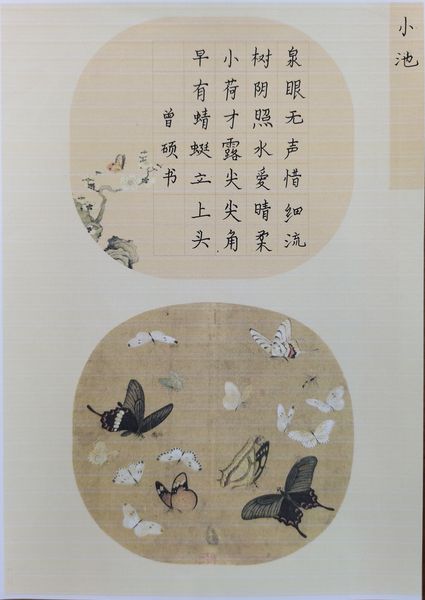 小池
泉眼无声惜细流
树阴照水愛晴柔
小荷才露尖尖角
早有蜻蜓立上头
曾硕书